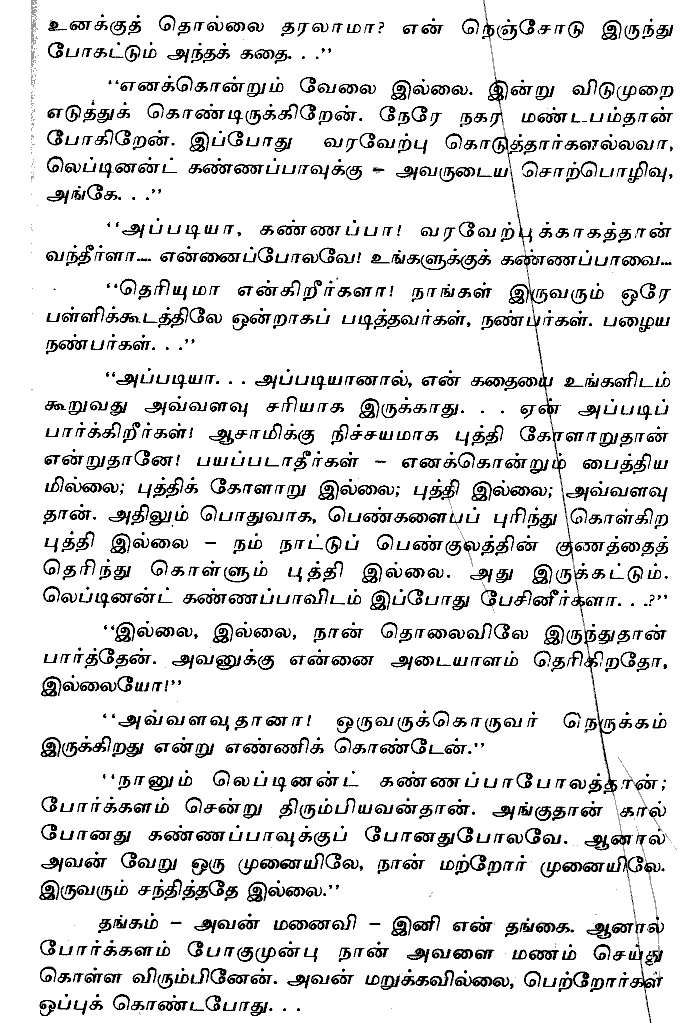 உனக்குத் தொல்லை தரலாமா? என் நெஞ்சோடு இருந்து
போகட்டும் அந்தக் கதை. . .”
“எனக்கொன்றும் வேலை இல்லை. இன்று விடுமுறை
எடுத்துக் கொண்டிருக்கிறேன். நேரே நகர மண்டபம்தான்
போகிறேன். இப்போது வரவேற்பு கொடுத்தார்களல்லவா,
லெப்டினன்ட் கண்ணப்பாவுக்கு – அவருடைய சொற்பொழிவு,
அங்கே. . .”
“அப்படியா, கண்ணப்பா! வரவேற்புக்காகத்தான்
வந்தீர்ளா.... என்னைப்போலவே! உங்களுக்குக் கண்ணப்பாவை...
“தெரியுமா என்கிறீர்களா! நாங்கள் இருவரும் ஒரே
பள்ளிக்கூடத்திலே ஒன்றாகப் படித்தவர்கள், நண்பர்கள். பழைய
நண்பர்கள். . .”
“அப்படியா. . . அப்படியானால், என் கதையை உங்களிடம்
கூறுவது அவ்வளவு சரியாக இருக்காது. . . ஏன் அப்படிப்
பார்க்கிறீர்கள்! ஆசாமிக்கு நிச்சயமாக புத்தி கோளாறுதான்
என்றுதானே! பயப்படாதீர்கள் – எனக்கொன்றும் பைத்திய
மில்லை; புத்திக் கோளாறு இல்லை; புத்தி இல்லை; அவ்வளவு
தான். அதிலும் பொதுவாக, பெண்களைபப் புரிந்து கொள்கிற
புத்தி இல்லை – நம் நாட்டுப் பெண்குலத்தின் குணத்தைத்
தெரிந்து கொள்ளும் புத்தி இல்லை. அது இருக்கட்டும்.
லெப்டினன்ட் கண்ணப்பாவிடம் இப்போது பேசினீர்களா. . .?”
“இல்லை, இல்லை, நான் தொலைவிலே இருந்துதான்
பார்த்தேன். அவனுக்கு என்னை அடையாளம் தெரிகிறதோ,
இல்லையோ!”
“அவ்வளவுதானா! ஒருவருக்கொருவர் நெருக்கம்
இருக்கிறது என்று எண்ணிக் கொண்டேன்.”
“நானும் லெப்டினன்ட் கண்ணப்பாபோலத்தான்;
போர்க்களம் சென்று திரும்பியவன்தான். அங்குதான் கால்
போனது கண்ணப்பாவுக்குப் போனதுபோலவே. ஆனால்
அவன் வேறு ஒரு முனையிலே, நான் மற்றோர் முனையிலே.
இருவரும் சந்தித்ததே இல்லை.”
தங்கம் – அவன் மனைவி – இனி என் தங்கை. ஆனால்
போர்க்களம் போகுமுன்பு நான் அவளை மணம் செய்து
கொள்ள விரும்பினேன். அவன் மறுக்கவில்லை, பெற்றோர்கள்
ஒப்புக் கொண்டபோது. . .